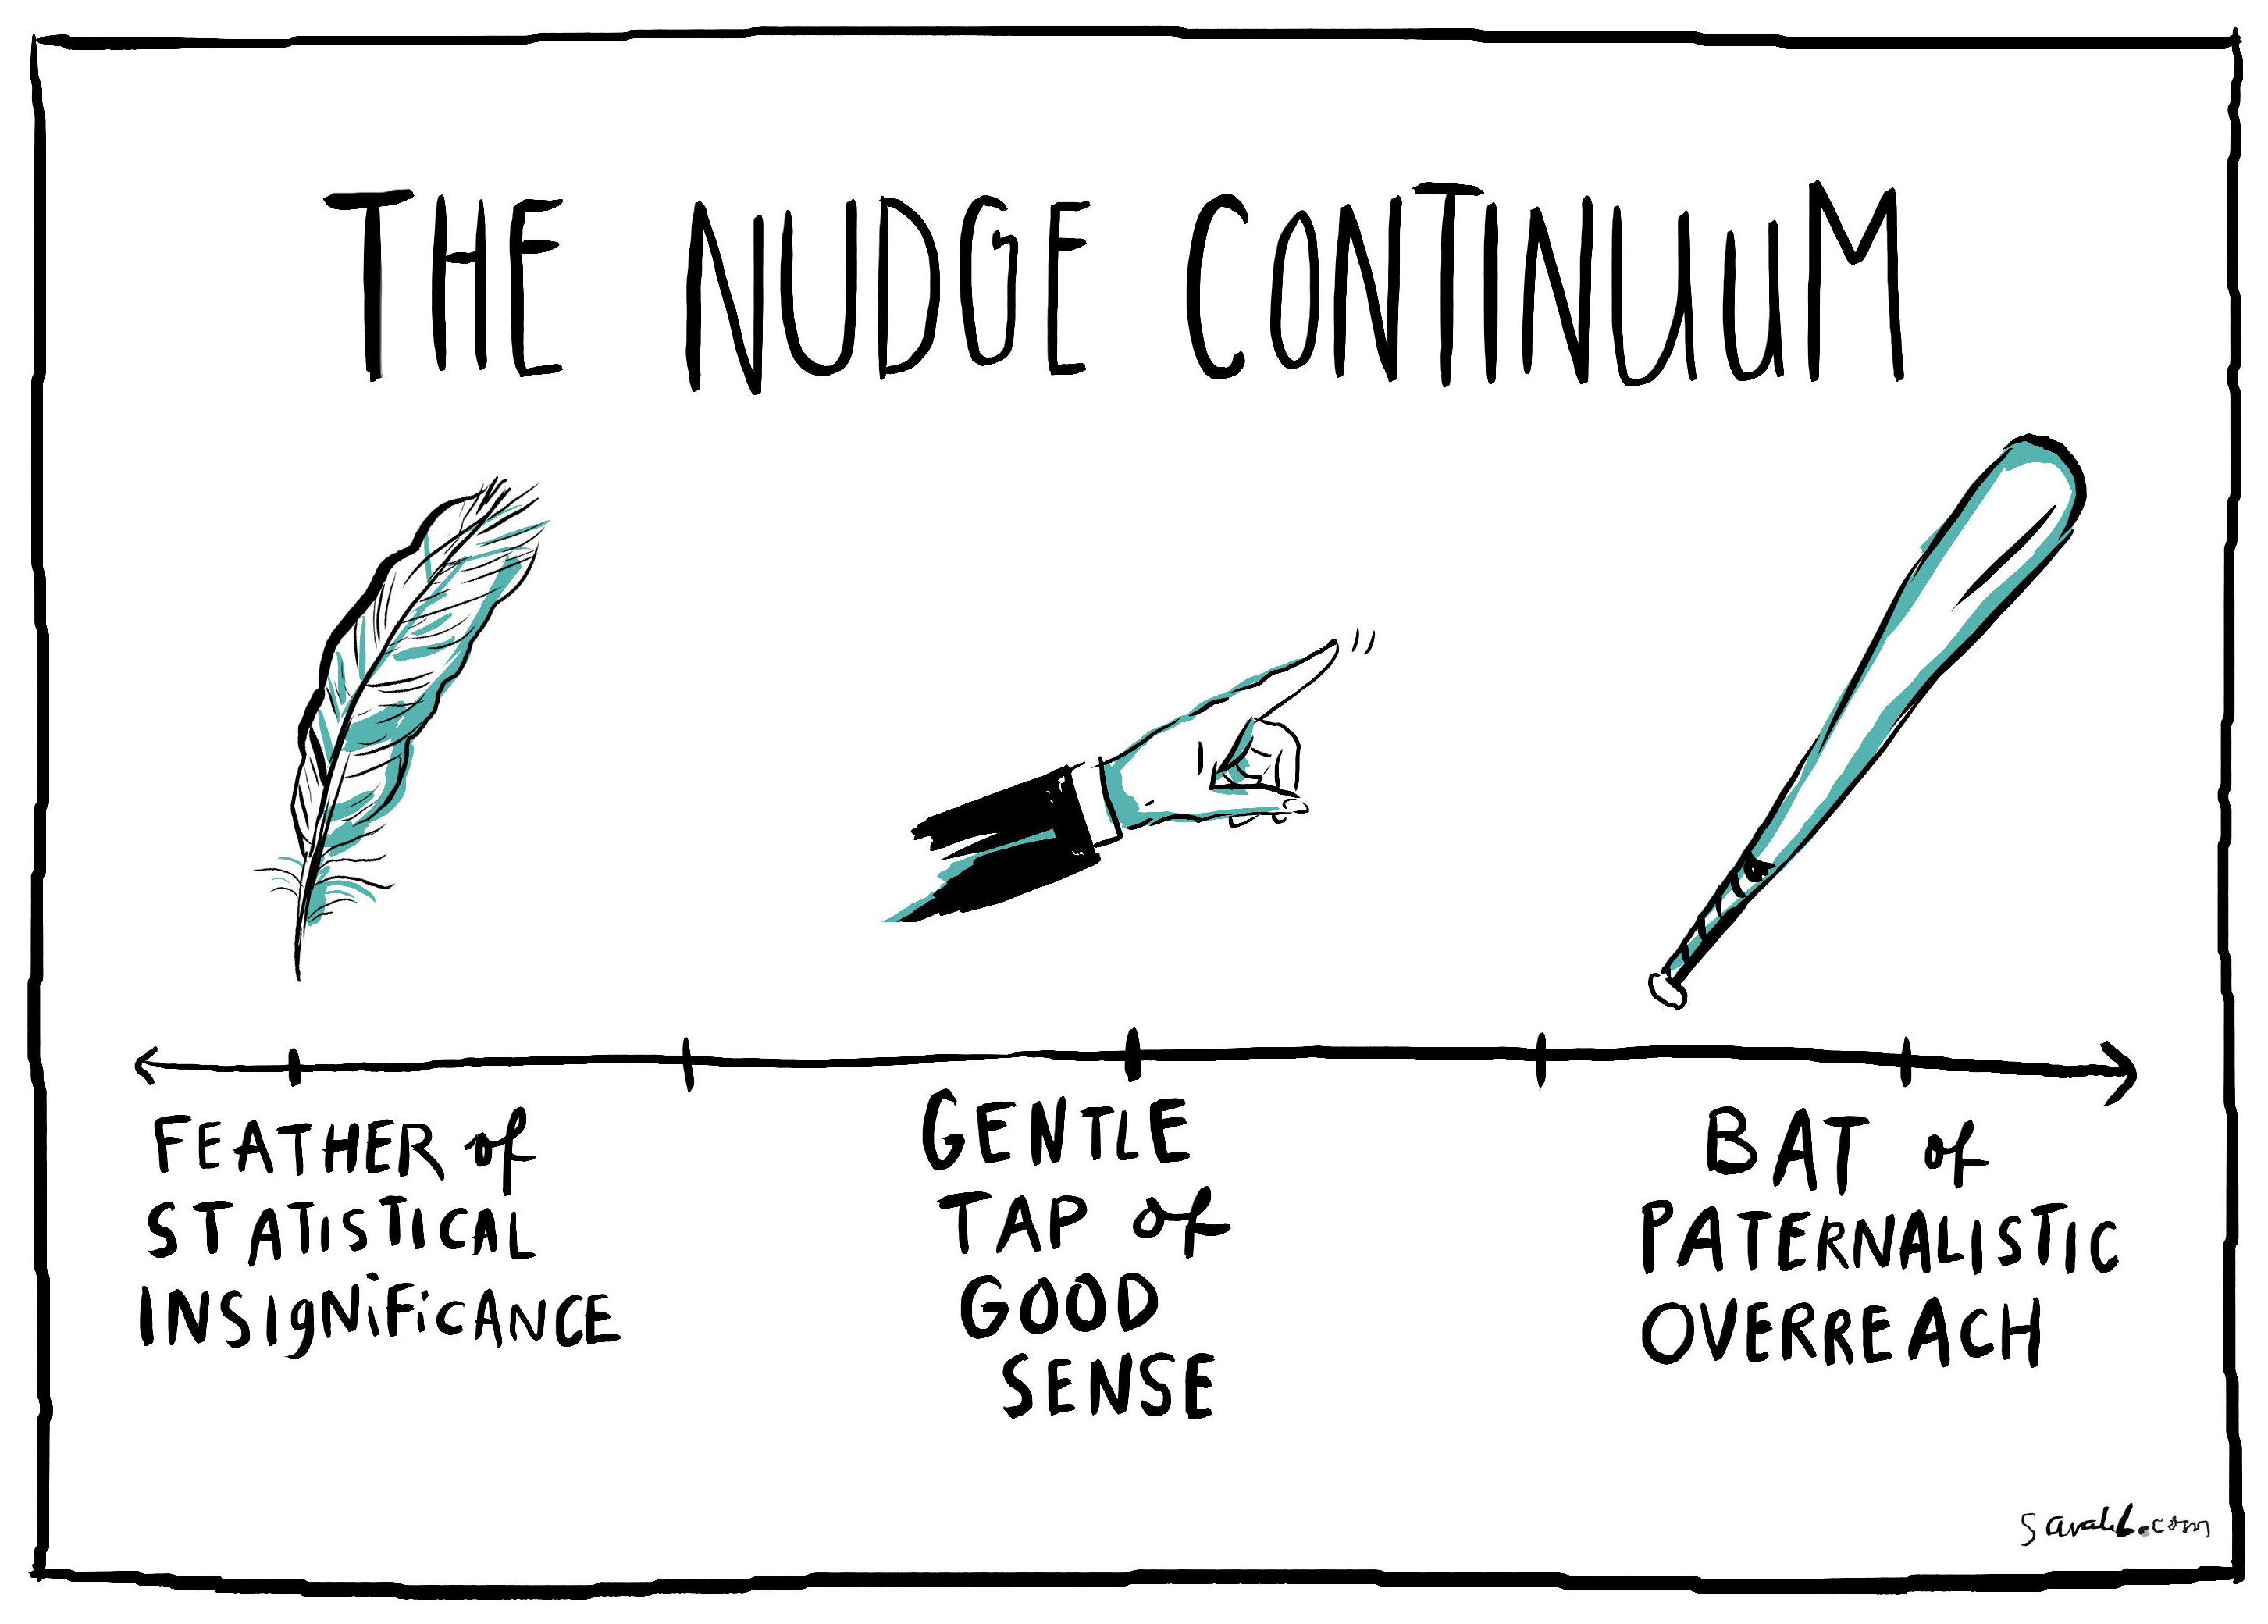 THE NUDGE CONTINUUM
FEATHER of
STATISTICAL
INSIGNIFICANCE
GENTLE
TAP of
GOOD
SENSE
BAT of
PATERNALISTIC
OVERREACH